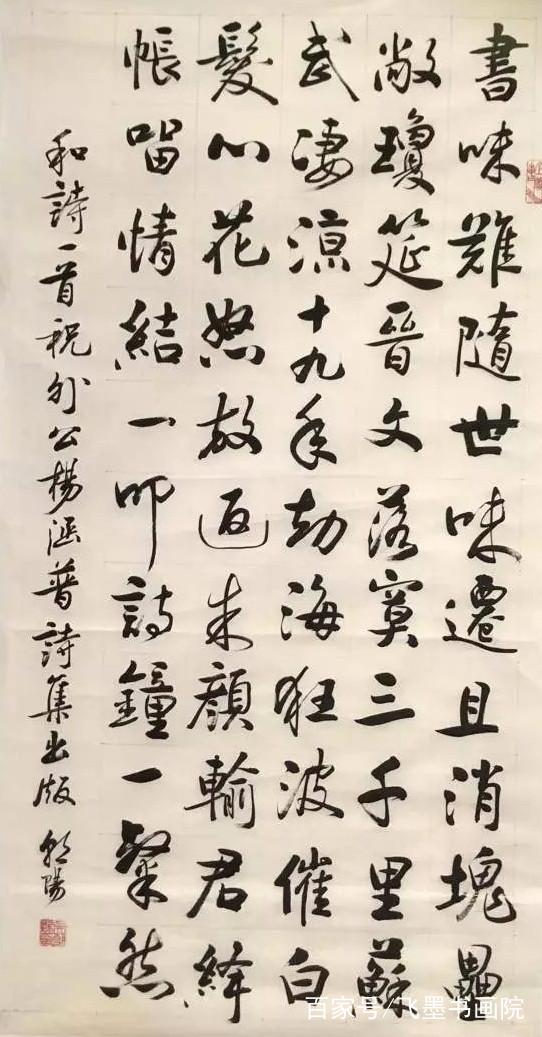 書味難隨世味遷且消塊壘
敞瓊筵晉文落寞三千里蘇
武淒涼十九年劫海狂波催白
髮心花怒放返朱顏輸君絳
帳留情結一叩詩鐘一粲然
和詩一首祝外公楊涵普詩集出版 陽
百家号/飞墨书画院